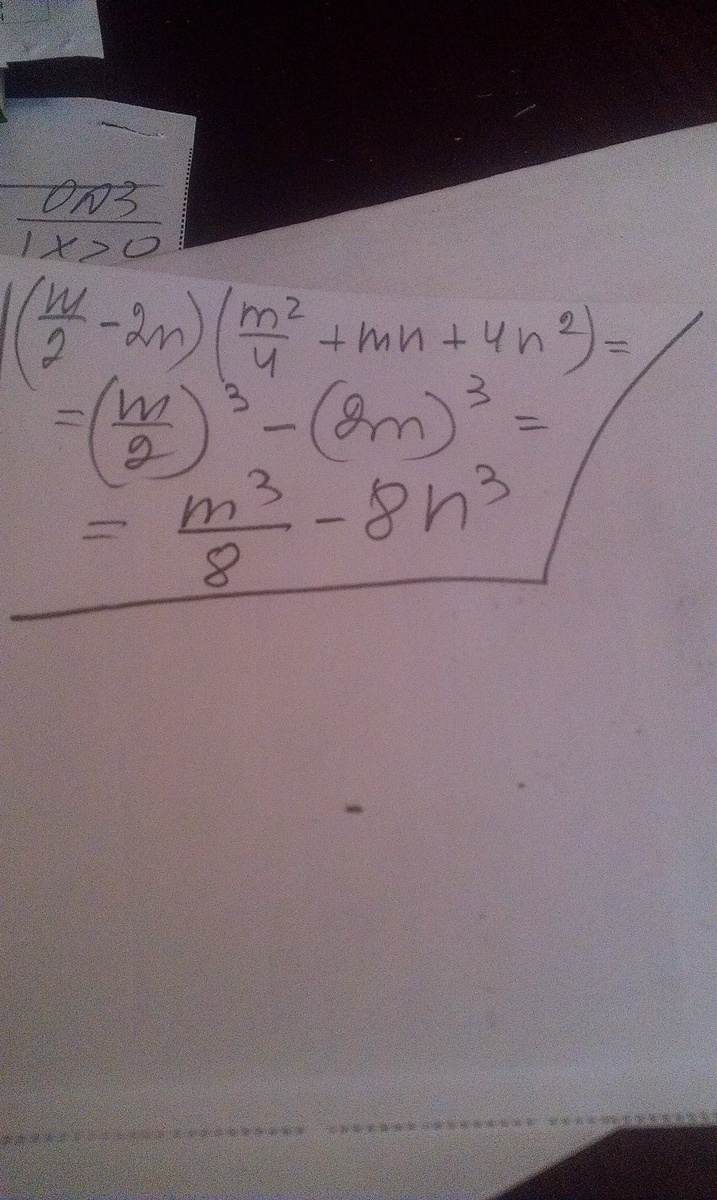 ОДЗ
x>0
(m/2 - 2n)(m²/4 + mn + 4n²) =
= (m/2)³ - (2n)³ =
= m³/8 - 8n³